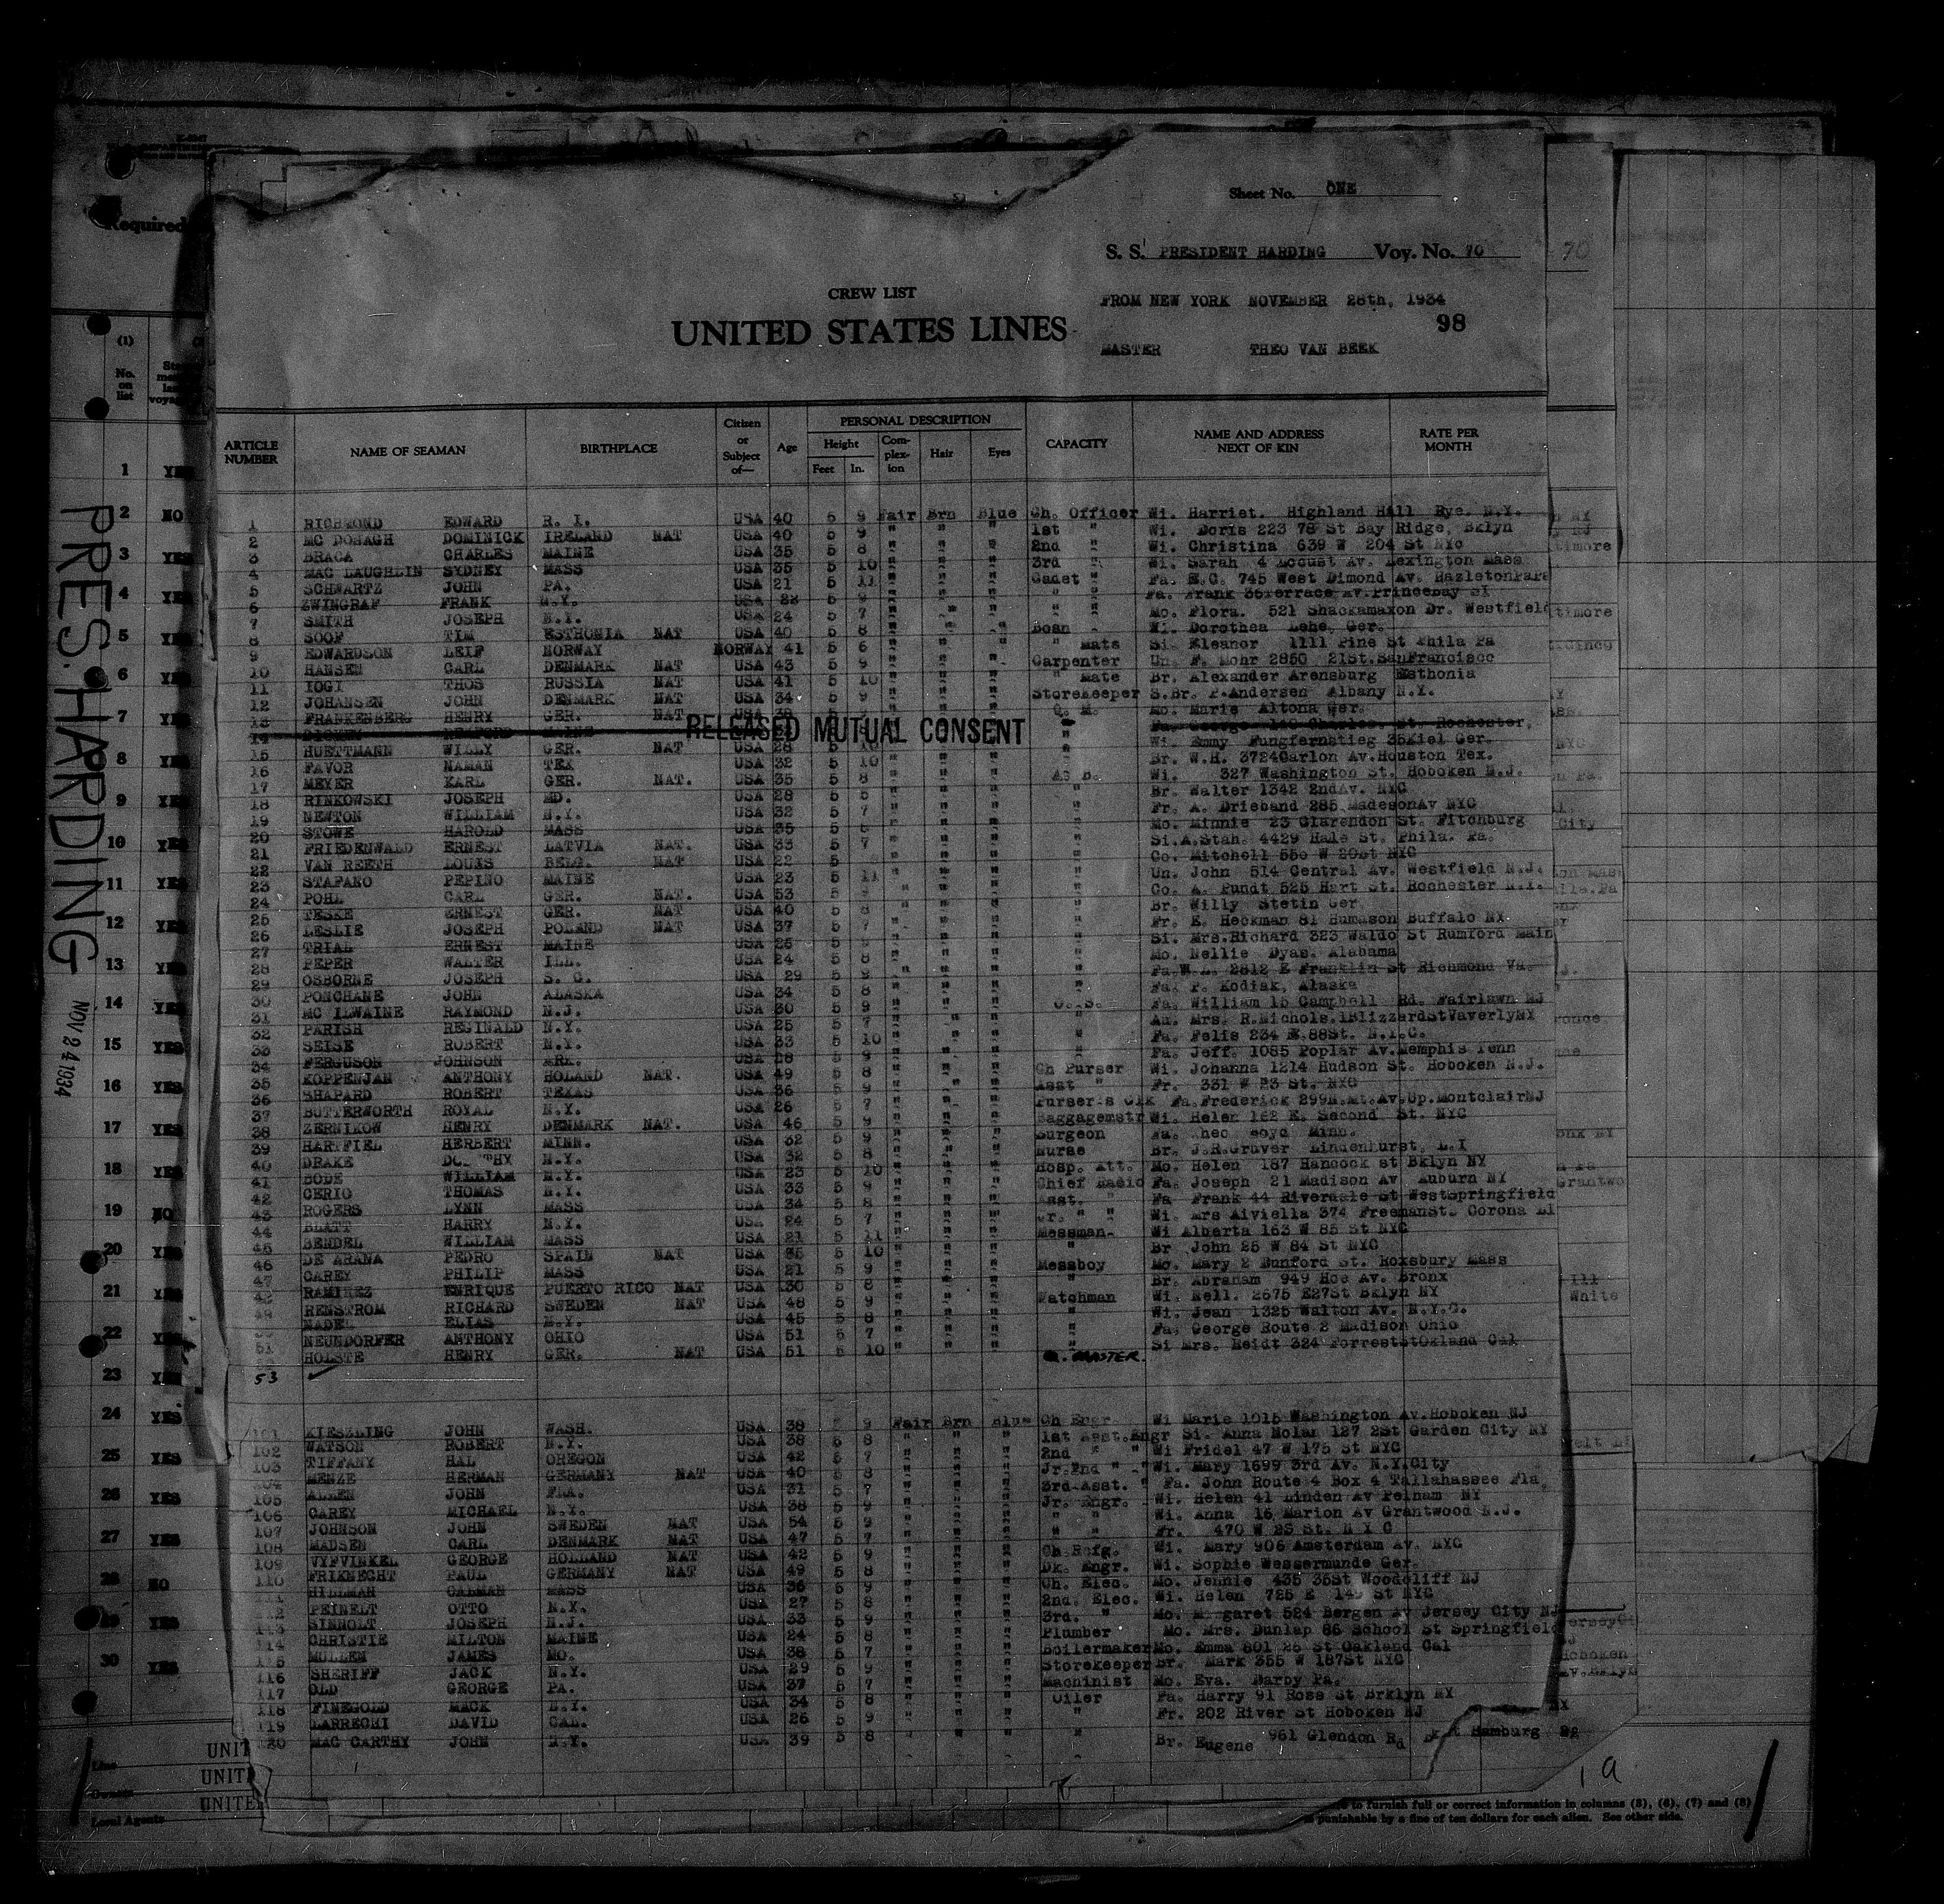 Sheet No. ONE
S. S. PRESIDENT HARDING Voy. No. 70
70
CREW LIST
FROM NEW YORK NOVEMBER 28th, 1934
UNITED STATES LINES
98
MASTER THEO VAN BEEK
Required
(1)
No. on list
PRES. HARDING NOV 24 1934
ARTICLE NUMBER NAME OF SEAMAN BIRTHPLACE Citizen or Subject of— Age PERSONAL DESCRIPTION Height Feet In. Complexion Hair Eyes CAPACITY NAME AND ADDRESS NEXT OF KIN RATE PER MONTH
1 RICHMOND EDWARD R. I. USA 40 5 9 Fair Brn Blue Ch. Officer Wi. Harriet. Highland Hall Rye. N.Y.
2 MC DONAGH DOMINICK IRELAND NAT USA 40 5 9 " " " 1st " Wi. Doris 223 78 St Bay Ridge, Bklyn
3 BRACA CHARLES MAINE USA 35 5 8 " " " 2nd " Wi. Christina 639 W 204 St NYC
4 MAC LAUGHLIN SYDNEY MASS USA 35 5 10 " " " 3rd " Wi. Sarah 4 Locust Av. Lexington Mass
5 SCHWARTZ JOHN PA. USA 21 5 11 " " " Cadet " Fa. E.C. 745 West Dimond Av. Hazleton
6 ZWINGRAF FRANK N.Y. USA 5 9 " " " " " Fa. Frank Terrace Av. Princebay SI
7 SMITH JOSEPH N.Y. USA 24 5 7 " " " " " Mo. Flora. 521 Shackamaxon Dr. Westfield
8 SOOF TIM ESTHONIA NAT USA 40 5 8 " " " Bosn Wi. Dorothea Lehe, Ger.
9 EDWARDSON LEIF NORWAY NORWAY 41 5 6 " " " " Mate Si. Eleanor 1111 Pine St Phila Pa
10 HANSEN CARL DENMARK NAT USA 43 5 9 " " " Carpenter Un. F. Mohr 2850 21St. SanFrancisco
11 IOGI THOS RUSSIA NAT USA 41 5 10 " " " " Mate Br. Alexander Arensburg Esthonia
12 JOHANSEN JOHN DENMARK NAT USA 34 5 9 " " " Storekeeper S.Br. P.Andersen Albany N.Y.
13 FRANKENBERG HENRY GER. NAT USA Q. M. Mo. Marie Altona Ger.
14 RELEASED MUTUAL CONSENT Fa. George Charles. St. Rochester,
15 HUETTMANN WILLY GER. NAT USA 28 5 10 " Wi. Emmy Fungfernstieg 35Kiel Ger.
16 FAVOR NAMAN TEX USA 32 5 10 " Br. W.H. 3724Carlon Av.Houston Tex.
17 MEYER KARL GER. NAT. USA 35 5 8 A. B. Wi. 327 Washington St. Hoboken N.J.
18 RINKOWSKI JOSEPH MD. USA 28 5 " Br. Walter 1342 2ndAv. NYC
19 NEWTON WILLIAM N.Y. USA 32 5 7 " Fr. A. Drieband 285 MadesonAv NYC
20 STOWE HAROLD MASS USA 35 5 " Mo. Minnie 23 Clarendon St. Fitchburg
21 FRIEDENWALD ERNEST LATVIA NAT. USA 33 5 7 " Si.A.Stah. 4429 Hale St. Phila. Pa.
22 VAN REETH LOUIS BELG. NAT USA 22 5 " Co. Mitchell 550 W 20St NYC
23 STAFANO PEPINO MAINE USA 23 5 11 " Un. John 514 Central Av. Westfield N.J.
24 POHL CARL GER. NAT. USA 53 5 " Co. A. Pundt 525 Hart St. Rochester N.Y.
25 TESKE ERNEST GER. NAT USA 40 5 8 " Br. Willy Stetin Ger.
26 LESLIE JOSEPH POLAND NAT USA 37 5 7 " Fr. E. Heckman 81 Humason Buffalo NY
27 TRIAL ERNEST MAINE USA 25 5 " Si. Mrs.Richard 323 Waldo St Rumford Main
28 PEPER WALTER ILL. USA 24 5 8 " Mo. Nellie Dyas. Alabama
29 OSBORNE JOSEPH S. C. USA 29 5 9 " Fa.W.L. 2812 E Franklin St Richmond Va.
30 PONCHANE JOHN ALASKA USA 34 5 8 " Fa. P. Kodiak, Alaska
31 MC ILWAINE RAYMOND N.J. USA 30 5 9 O. S. Fa. William 15 Campbell Rd. Fairlawn NJ
32 PARISH REGINALD N.Y. USA 25 5 7 " Au. Mrs. R.Nichols.1BlizzardStWaverlyNY
33 SEISE ROBERT N.Y. USA 33 5 10 " Fa. Felis 234 E.88St. N.Y.C.
34 FERGUSON JOHNSON ARK. USA 28 5 9 " Fa. Jeff. 1085 Poplar Av.Memphis Tenn
35 KOPPENJAN ANTHONY HOLAND NAT. USA 49 5 8 Ch Purser Wi. Johanna 1214 Hudson St. Hoboken N.J.
36 SHAPARD ROBERT TEXAS USA 36 5 9 Asst " Fr. 331 W 23 St. NYC
37 BUTTERWORTH ROYAL N.Y. USA 26 5 7 Purser's Clk Fa.Frederick 299N.Mt.Av.Up.MontclairNJ
38 ZERNIKOW HENRY DENMARK NAT. USA 46 5 9 Baggagemstr Wi. Helen 162 E. Second St. NYC
39 HARTFIEL HERBERT MINN. USA 32 5 9 Surgeon Fa. Theo Boyd Minn.
40 DRAKE N.Y. USA 32 5 8 Nurse Br. J.R.Gruver Lindenhurst, L.I
41 BODE WILLIAM N.Y. USA 23 5 10 Hosp. Att. Mo. Helen 187 Hancock st Bklyn NY
42 CERIO THOMAS N.Y. USA 33 5 9 Chief Radio Fa. Joseph 21 Madison Av Auburn NY
43 ROGERS LYNN MASS USA 34 5 8 Asst. " Fa Frank 44 Riverdale St WestSpringfield
44 BLATT HARRY N.Y. USA 24 5 7 Jr. " " Wi. Mrs Aiviella 374 FreemanSt. Corona LI
45 BENDEL WILLIAM MASS USA 21 5 11 Messman Wi Alberta 163 W 85 St NYC
46 DE ARANA PEDRO SPAIN NAT USA 5 10 " Br John 25 W 84 St NYC
47 CAREY PHILIP MASS USA 21 5 9 Messboy Mo. Mary 2 Dunford St. Roxsbury Mass
RAMIREZ ENRIQUE PUERTO RICO NAT USA 30 5 8 " Br. Abraham 949 Hoe Av. Bronx
49 RENSTROM RICHARD SWEDEN NAT USA 48 5 9 Watchman Wi. Nell. 2675 E27St Bklyn NY
NADEL ELIAS N.Y. USA 45 5 8 " Wi. Jean 1325 Walton Av. N.Y.C.
51 NEUNDORFER ANTHONY OHIO USA 51 5 7 " Fa. George Route 2 Madison Ohio
HOLSTE HENRY GER. NAT USA 51 5 10 " Si Mrs. Heidt 324 ForrestStOkland Cal
53 MASTER.
101 KIESZLING JOHN WASH. USA 38 9 Fair Brn Blue Ch Engr. Wi Marie 1015 Washington Av.Hoboken NJ
102 WATSON ROBERT N.Y. USA 38 5 8 " " " 1st Asst.Engr Si. Anna Nolan 127 2St Garden City NY
103 TIFFANY HAL OREGON USA 42 5 7 " " " 2nd " " Wi Fridel 47 W 175 St NYC
104 MENZE HERMAN GERMANY NAT USA 40 5 8 " " " Jr.2nd " " Wi. Mary 1699 3rd Av. N.Y.City
105 ALLEN JOHN FLA. USA 31 5 7 " " " 3rd Asst. " Fa. John Route 4 Box 4 Tallahassee Fla.
106 CAREY MICHAEL N.Y. USA 38 5 9 " " " Jr. Engr. Wi. Helen 41 Linden Av Pelham NY
107 JOHNSON JOHN SWEDEN NAT USA 54 5 9 " " " " " Wi. Anna 16 Marion Av Grantwood N.J.
108 MADSEN CARL DENMARK NAT USA 47 5 7 " " " " " Fr. 470 W 23 St. N Y C
109 VYFVINKEL GEORGE HOLLAND NAT USA 42 5 9 " " " Ch Refg. Wi. Mary 906 Amsterdam Av. NYC
110 FRIKNECHT PAUL GERMANY NAT USA 49 5 8 " " " Dk. Engr. Wi. Sophie Wessermunde Ger.
111 HILLMAN CALMAN MASS USA 36 5 9 " " " Ch. Elec. Mo. Jennie 435 35St Woodcliff NJ
112 PEINELT OTTO N.Y. USA 27 5 8 " " " 2nd. Elec. Wi. Helen 725 E 149 St NYC
113 SINNOLT JOSEPH N.J. USA 33 5 9 " " " 3rd. " Mo. Margaret 524 Bergen Av Jersey City NJ
114 CHRISTIE MILTON MAINE USA 24 5 8 " " " Plumber Mo. Mrs. Dunlap 86 School St Springfield
115 MULLEN JAMES MO. USA 38 5 7 " " " Boilermaker Mo. Emma 801 26 St Oakland Cal
116 SHERIFF JACK N.Y. USA 29 5 9 " " " Storekeeper Br. Mark 355 W 187St NYC
117 OLD GEORGE PA. USA 37 5 7 " " " Machinist Mo. Eva. Darby Pa.
118 FINEGOLD MACK N.Y. USA 34 5 8 " " " Oiler Fa. Harry 91 Ross St Brklyn NY
119 LARRECHI DAVID CAL. USA 26 5 9 " " " " Fr. 202 River St Hoboken NJ
120 MAC CARTHY JOHN N.Y. USA 39 5 8 " " " " Br. Eugene 961 Glendon Rd
1 YES
2 NO
3 YES
4 YES
5 YES
6 YES
7 YES
8 YES
9 YES
10 YES
11 YES
12 YES
13 YES
14 YES
15 YES
16 YES
17 YES
18 YES
19 NO
20 YES
21 YES
22 YES
23 YES
24 YES
25 YES
26 YES
27 YES
28 NO
29 YES
30 YES
Line UNIT
Owners UNIT
Local Agents UNITE
1 a
to furnish full or correct information in columns (5), (6), (7) and (8)
punishable by a fine of ten dollars for each alien. See other side.